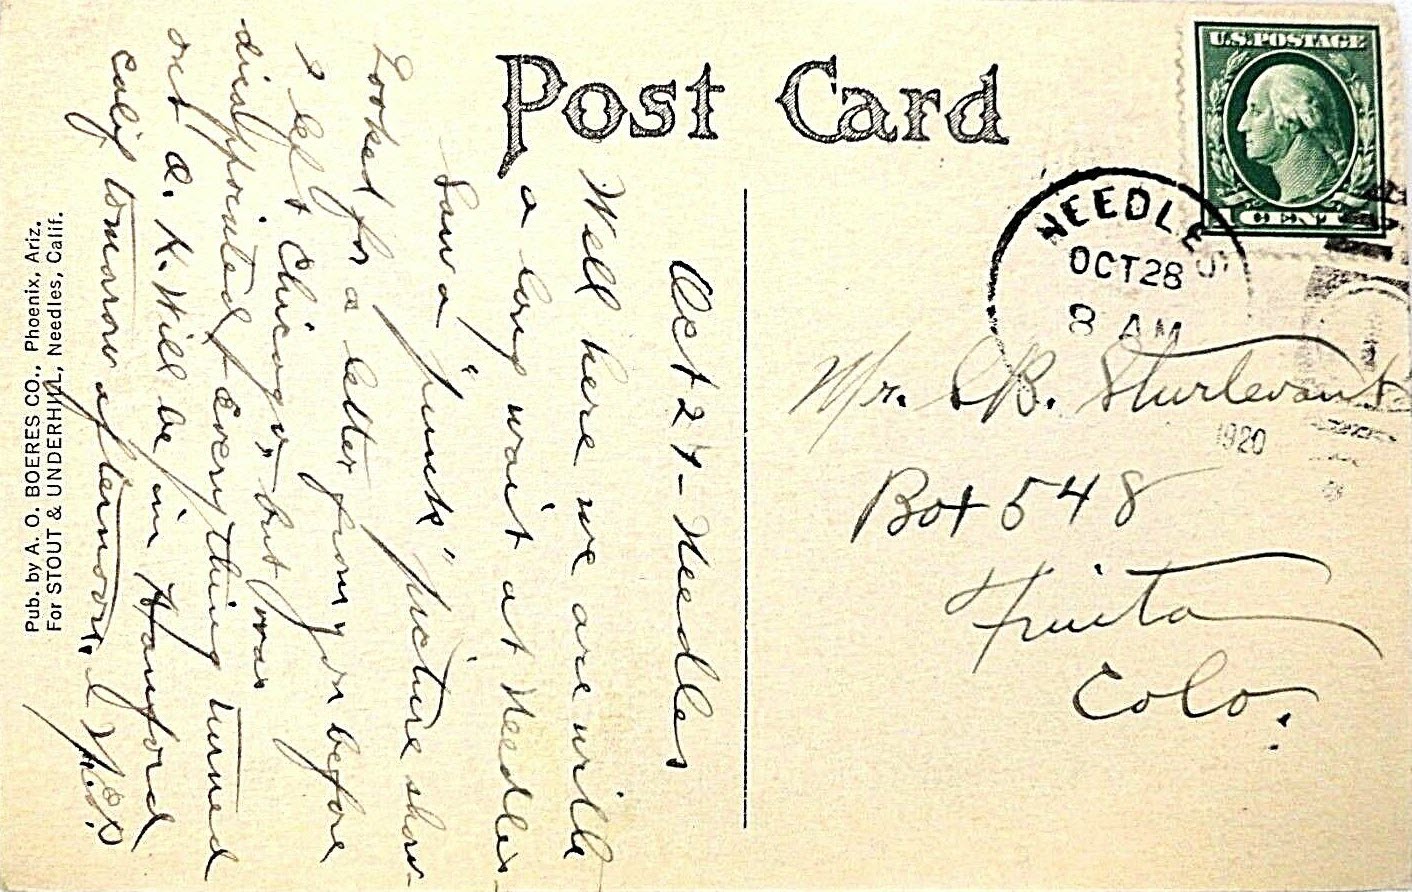 Post Card
U.S.POSTAGE
1 CENT 1
NEEDLES
OCT 28
8 AM
1920
Oct 27 - Needles
Well here we are with
a long wait at Needles
Saw a "punk" picture show-
Looked for a letter from you before
I left Chicago, but was
disappointed, Everything turned
out O.K. Will be in Hanford
Calif tomorrow afternoon.
Mr. B. Sturtevant
Box 548
Fruita
Colo.
Pub. by A. O. BOERES CO., Phoenix, Ariz.
For STOUT & UNDERHILL, Needles, Calif.